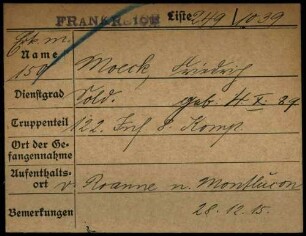 FRANKREICH Liste 249/1039
Name Moeck, Friedrich
159
Dienstgrad Sold. geb. 4 X. 89
Truppenteil 122. Inf 8. Komp.
Ort der Gefangennahme
Aufenthaltsort v. Roanne n. Montlucon
Bemerkungen 28.12.15.